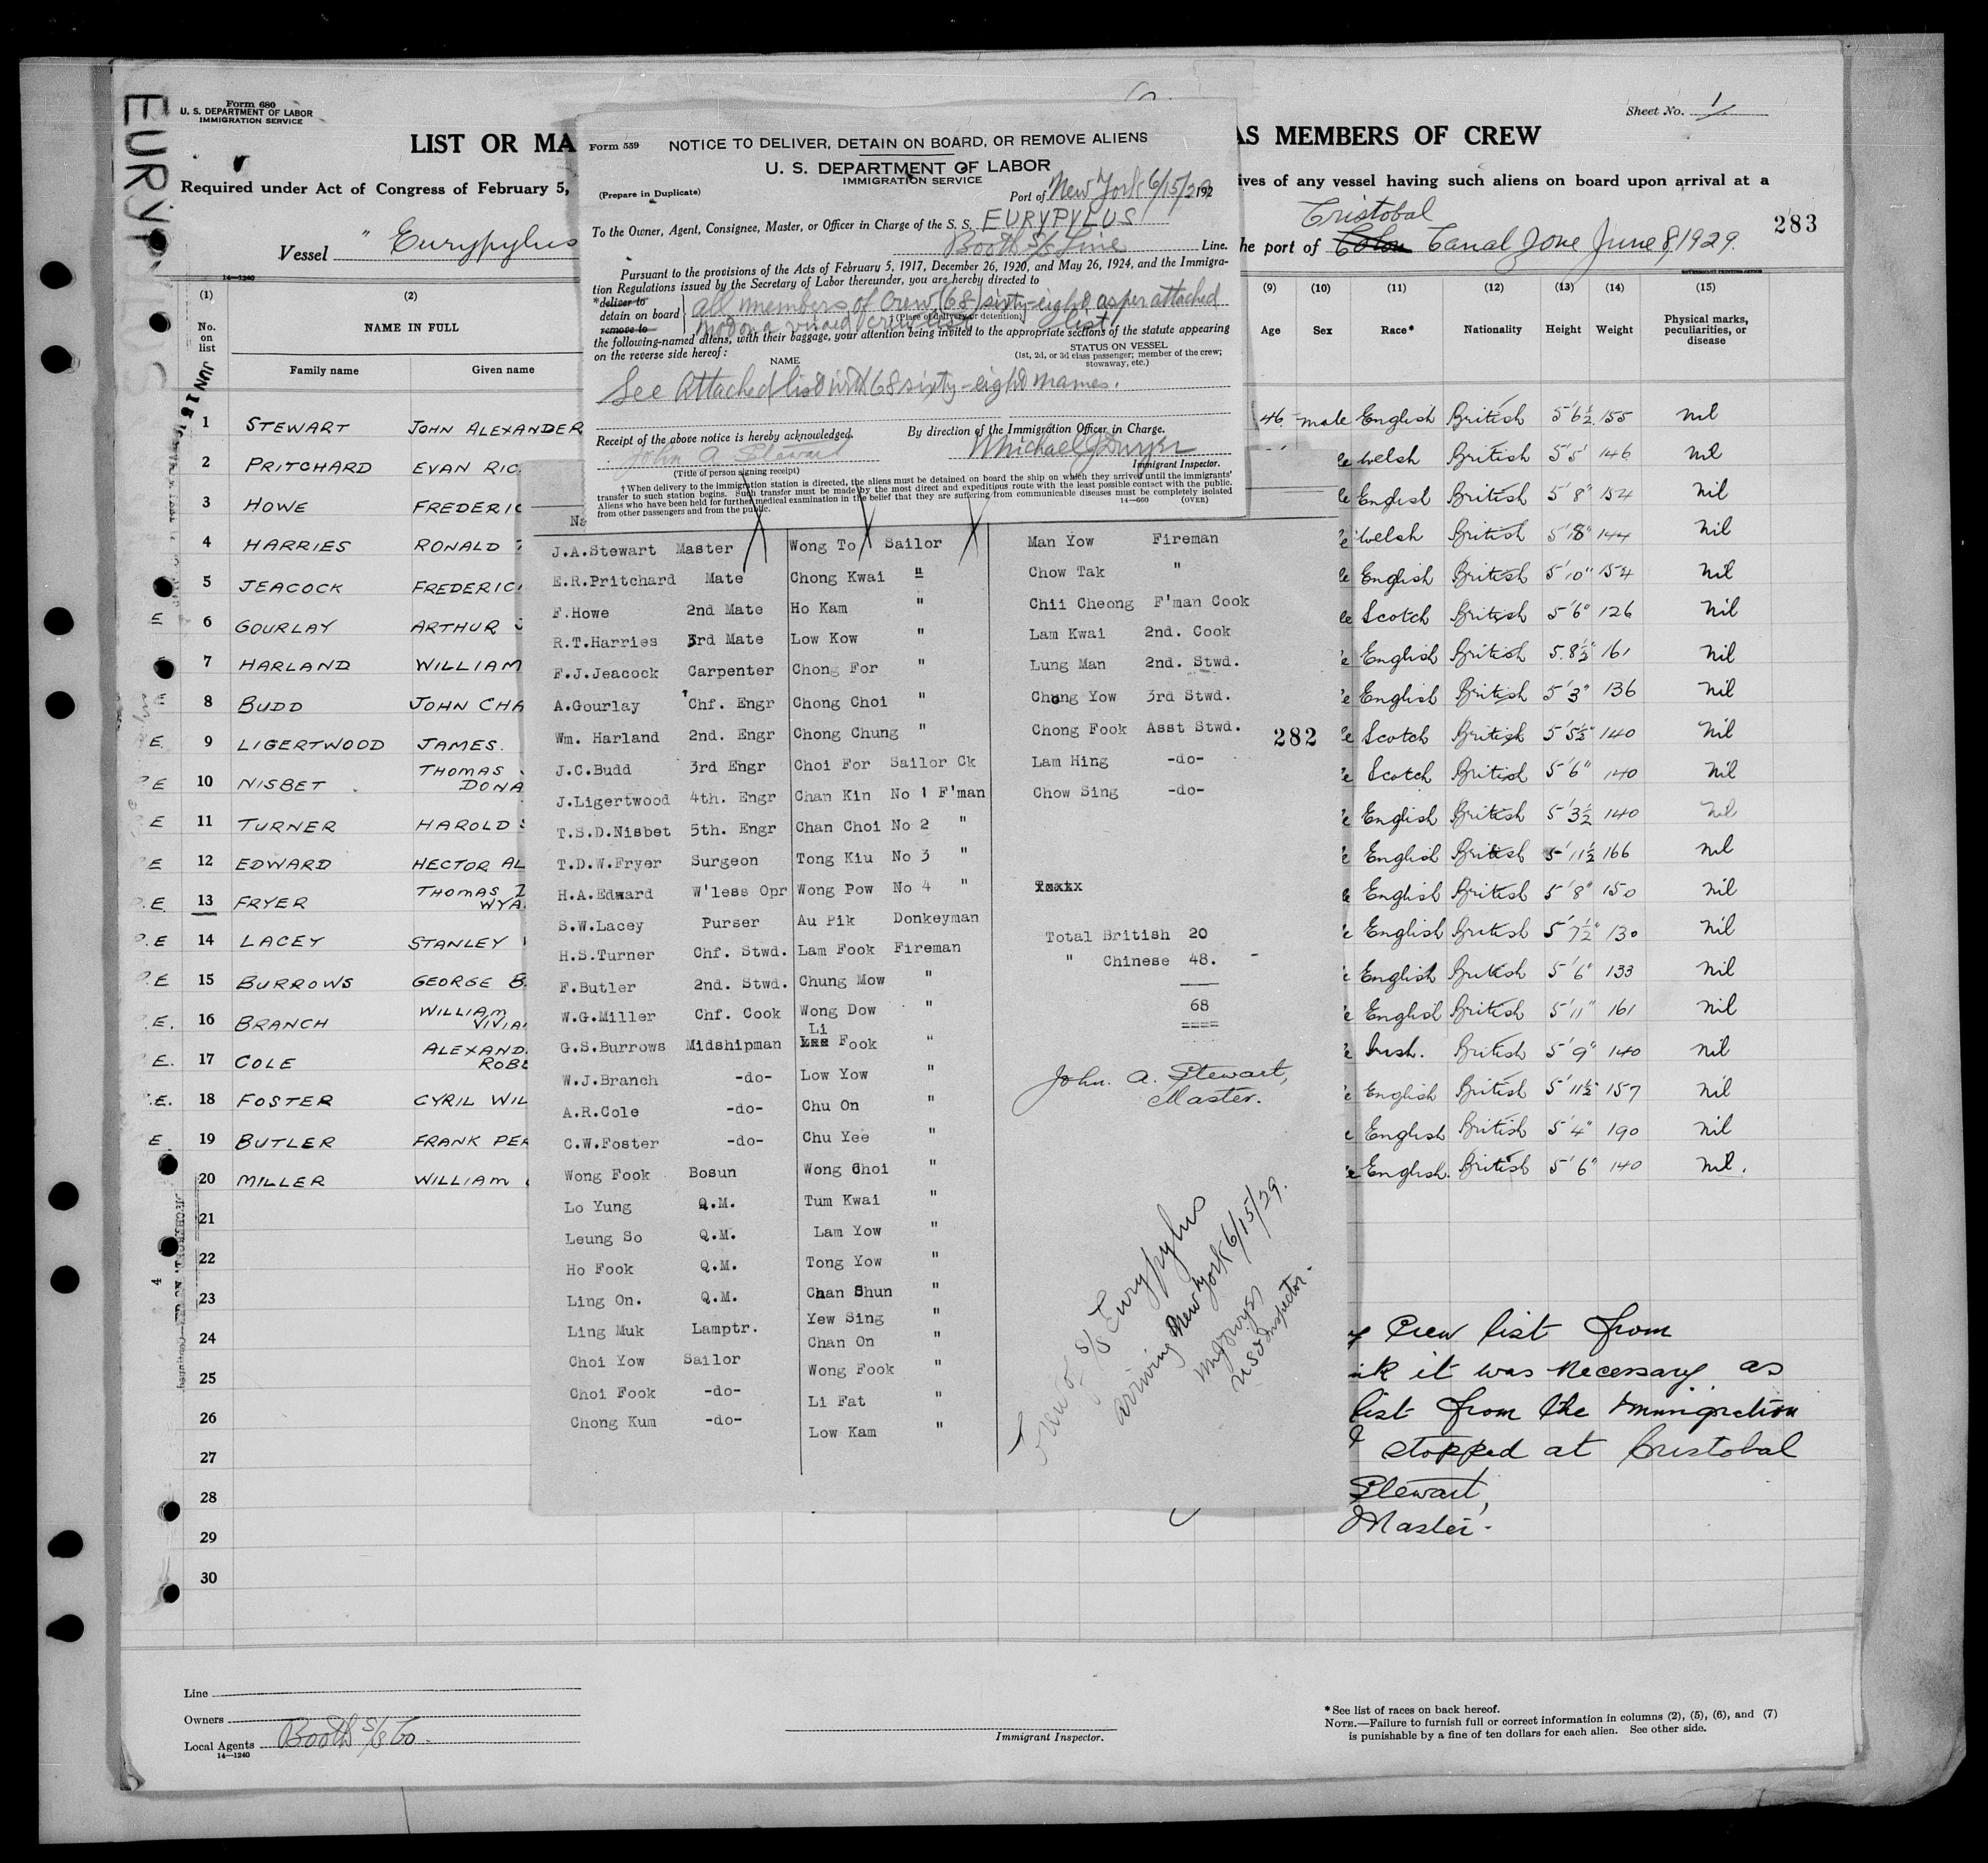 Form 680
U. S. DEPARTMENT OF LABOR
IMMIGRATION SERVICE
EURYPYLUS
LIST OR MA
AS MEMBERS OF CREW
Sheet No. 1
Required under Act of Congress of February 5,
ives of any vessel having such aliens on board upon arrival at a
Vessel " Eurypylus
he port of Colon Cristobal Canal Zone June 8, 1929.
283
14—1240
JUN 15
(1) (2) (9) (10) (11) (12) (13) (14) (15)
No. on list NAME IN FULL Age Sex Race* Nationality Height Weight Physical marks, peculiarities, or disease
Family name Given name
1 STEWART JOHN ALEXANDER 46 male English British 5'6½ 155 nil
2 PRITCHARD EVAN RIC le Welsh British 5'5" 146 nil
3 HOWE FREDERIC le English British 5'8" 154 nil
4 HARRIES RONALD le Welsh British 5'8" 144 nil
5 JEACOCK FREDERIC le English British 5'10" 154 nil
E 6 GOURLAY ARTHUR J le Scotch British 5'6" 126 nil
7 HARLAND WILLIAM e English British 5.8½" 161 nil
E 8 BUDD JOHN CHA e English British 5'3" 136 nil
E. 9 LIGERTWOOD JAMES. e Scotch British 5'5½" 140 nil
P E 10 NISBET THOMAS DONA e Scotch British 5'6" 140 nil
E 11 TURNER HAROLD S e English British 5'3½ 140 nil
P E 12 EDWARD HECTOR AL e English British 5'11½ 166 nil
P.E. 13 FRYER THOMAS D WYA e English British 5'8" 150 nil
P.E 14 LACEY STANLEY e English British 5'7½" 130 nil
P.E 15 BURROWS GEORGE B. e English British 5'6" 133 nil
.E. 16 BRANCH WILLIAM VIVIA e English British 5'11" 161 nil
E. 17 COLE ALEXAND ROBE e Irish. British 5'9" 140 nil
.E. 18 FOSTER CYRIL WIL e English British 5'11½" 157 nil
E. 19 BUTLER FRANK PER e English British 5'4" 190 nil
20 MILLER WILLIAM e English. British 5'6" 140 nil.
21
22
23
24
25
26
27
28
29
30
Crew list from
it was necessary as
list from the Immigration
stopped at Cristobal
Stewart,
Master.
Line
Owners
Local Agents Booth S/S Co.
14—1240
Immigrant Inspector.
*See list of races on back hereof.
NOTE.—Failure to furnish full or correct information in columns (2), (5), (6), and (7)
is punishable by a fine of ten dollars for each alien. See other side.
Form 559 NOTICE TO DELIVER, DETAIN ON BOARD, OR REMOVE ALIENS
U. S. DEPARTMENT OF LABOR
IMMIGRATION SERVICE
(Prepare in Duplicate)
Port of New York 6/15/29 192
To the Owner, Agent, Consignee, Master, or Officer in Charge of the S. S. EURYPYLUS
Booth S/S Line Line.
Pursuant to the provisions of the Acts of February 5, 1917, December 26, 1920, and May 26, 1924, and the Immigra-
tion Regulations issued by the Secretary of Labor thereunder, you are hereby directed to
*deliver to
detain on board
remove to
all members of crew (68) sixty-eight as per attached
(Place of delivery or detention)
not on a visaed crew list list
the following-named aliens, with their baggage, your attention being invited to the appropriate sections of the statute appearing
on the reverse side hereof:
NAME
STATUS ON VESSEL
(1st, 2d, or 3d class passenger; member of the crew;
stowaway, etc.)
See attached list with 68 sixty-eight names.
Receipt of the above notice is hereby acknowledged.
By direction of the Immigration Officer in Charge.
John A Stewart
Michael J Dwyer
(Title of person signing receipt)
Immigrant Inspector.
†When delivery to the immigration station is directed, the aliens must be detained on board the ship on which they arrived until the immigrants'
transfer to such station begins. Such transfer must be made by the most direct and expeditious route with the least possible contact with the public.
Aliens who have been held for further medical examination in the belief that they are suffering from communicable diseases must be completely isolated
from other passengers and from the public.
14—660 (OVER)
Na
J.A.Stewart Master
E.R.Pritchard Mate
F.Howe 2nd Mate
R.T.Harries 3rd Mate
F.J.Jeacock Carpenter
A.Gourlay Chf. Engr
Wm. Harland 2nd. Engr
J.C.Budd 3rd Engr
J.Ligertwood 4th. Engr
T.S.D.Nisbet 5th. Engr
T.D.W.Fryer Surgeon
H.A.Edward W'less Opr
S.W.Lacey Purser
H.S.Turner Chf. Stwd.
F.Butler 2nd. Stwd.
W.G.Miller Chf. Cook
G.S.Burrows Midshipman
W.J.Branch -do-
A.R.Cole -do-
C.W.Foster -do-
Wong Fook Bosun
Lo Yung Q.M.
Leung So Q.M.
Ho Fook Q.M.
Ling On. Q.M.
Ling Muk Lamptr.
Choi Yow Sailor
Choi Fook -do-
Chong Kum -do-
Wong To Sailor
Chong Kwai "
Ho Kam "
Low Kow "
Chong For "
Chong Choi "
Chong Chung "
Choi For Sailor Ck
Chan Kin No 1 F'man
Chan Choi No 2 "
Tong Kiu No 3 "
Wong Pow No 4 "
Au Pik Donkeyman
Lam Fook Fireman
Chung Mow "
Wong Dow "
Li
Lee Fook "
Low Yow "
Chu On "
Chu Yee "
Wong Choi "
Tum Kwai "
Lam Yow "
Tong Yow "
Chan Shun "
Yew Sing "
Chan On "
Wong Fook "
Li Fat "
Low Kam "
Man Yow Fireman
Chow Tak "
Chii Cheong F'man Cook
Lam Kwai 2nd. Cook
Lung Man 2nd. Stwd.
Chung Yow 3rd Stwd.
Chong Fook Asst Stwd.
282
Lam Hing -do-
Chow Sing -do-
Total British 20
" Chinese 48.
68
John. A. Stewart,
Master.
Crew of S/S Eurypylus
arriving New York 6/15/29.
MJ Dwyer
U S Inspector.